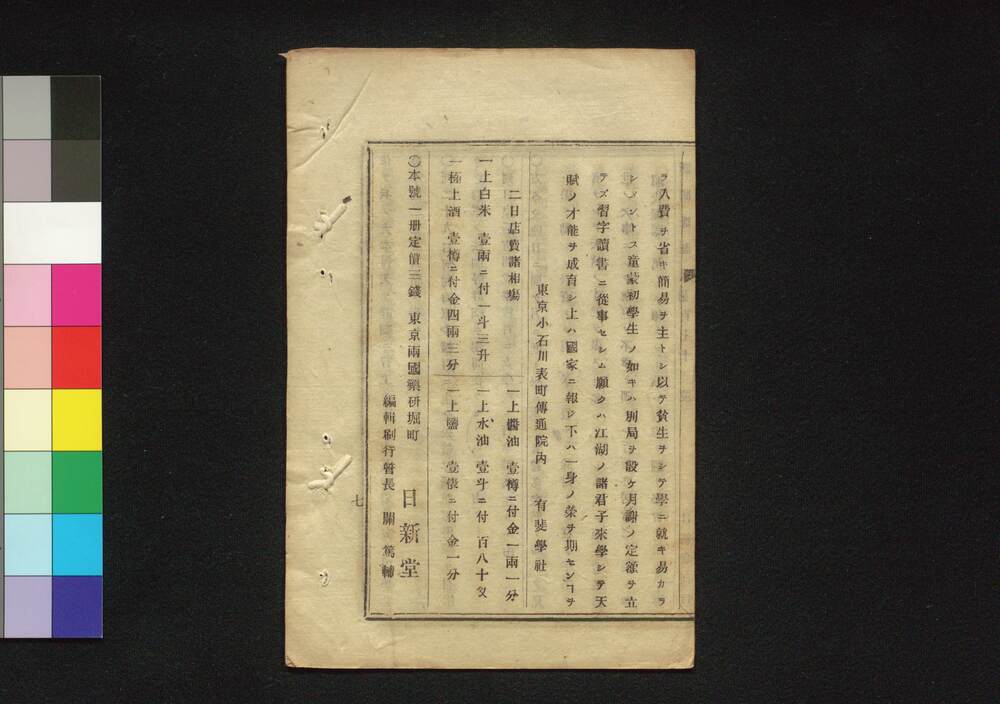 ヲ入費ヲ省キ簡易ヲ主トシ以テ貧生ヲシテ學ニ就キ易カラ
シメントス童蒙初學生ノ如キハ別局ヲ設ケ月謝ノ定額ヲ立
テズ習字讀書ニ從事セシム願クハ江湖ノ諸君子來學シテ天
賦ノ才能ヲ成育シ上ハ國家ニ報シ下ハ一身ノ榮ヲ期センヿヲ
東京小石川表町傳通院内 有斐學社
二日店賣諸相塲
一上白米 壹兩ニ付一斗三升
一極上酒 壹樽ニ付金四兩三分
一上醬油 壹樽ニ付金一兩一分
一上水油 壹斗ニ付 百八十匁
一上鹽 壹俵ニ付 金一分
〇本號一册定價三錢 東京兩國藥研堀町 日新堂
編輯刷行督長 關 篤輔
七